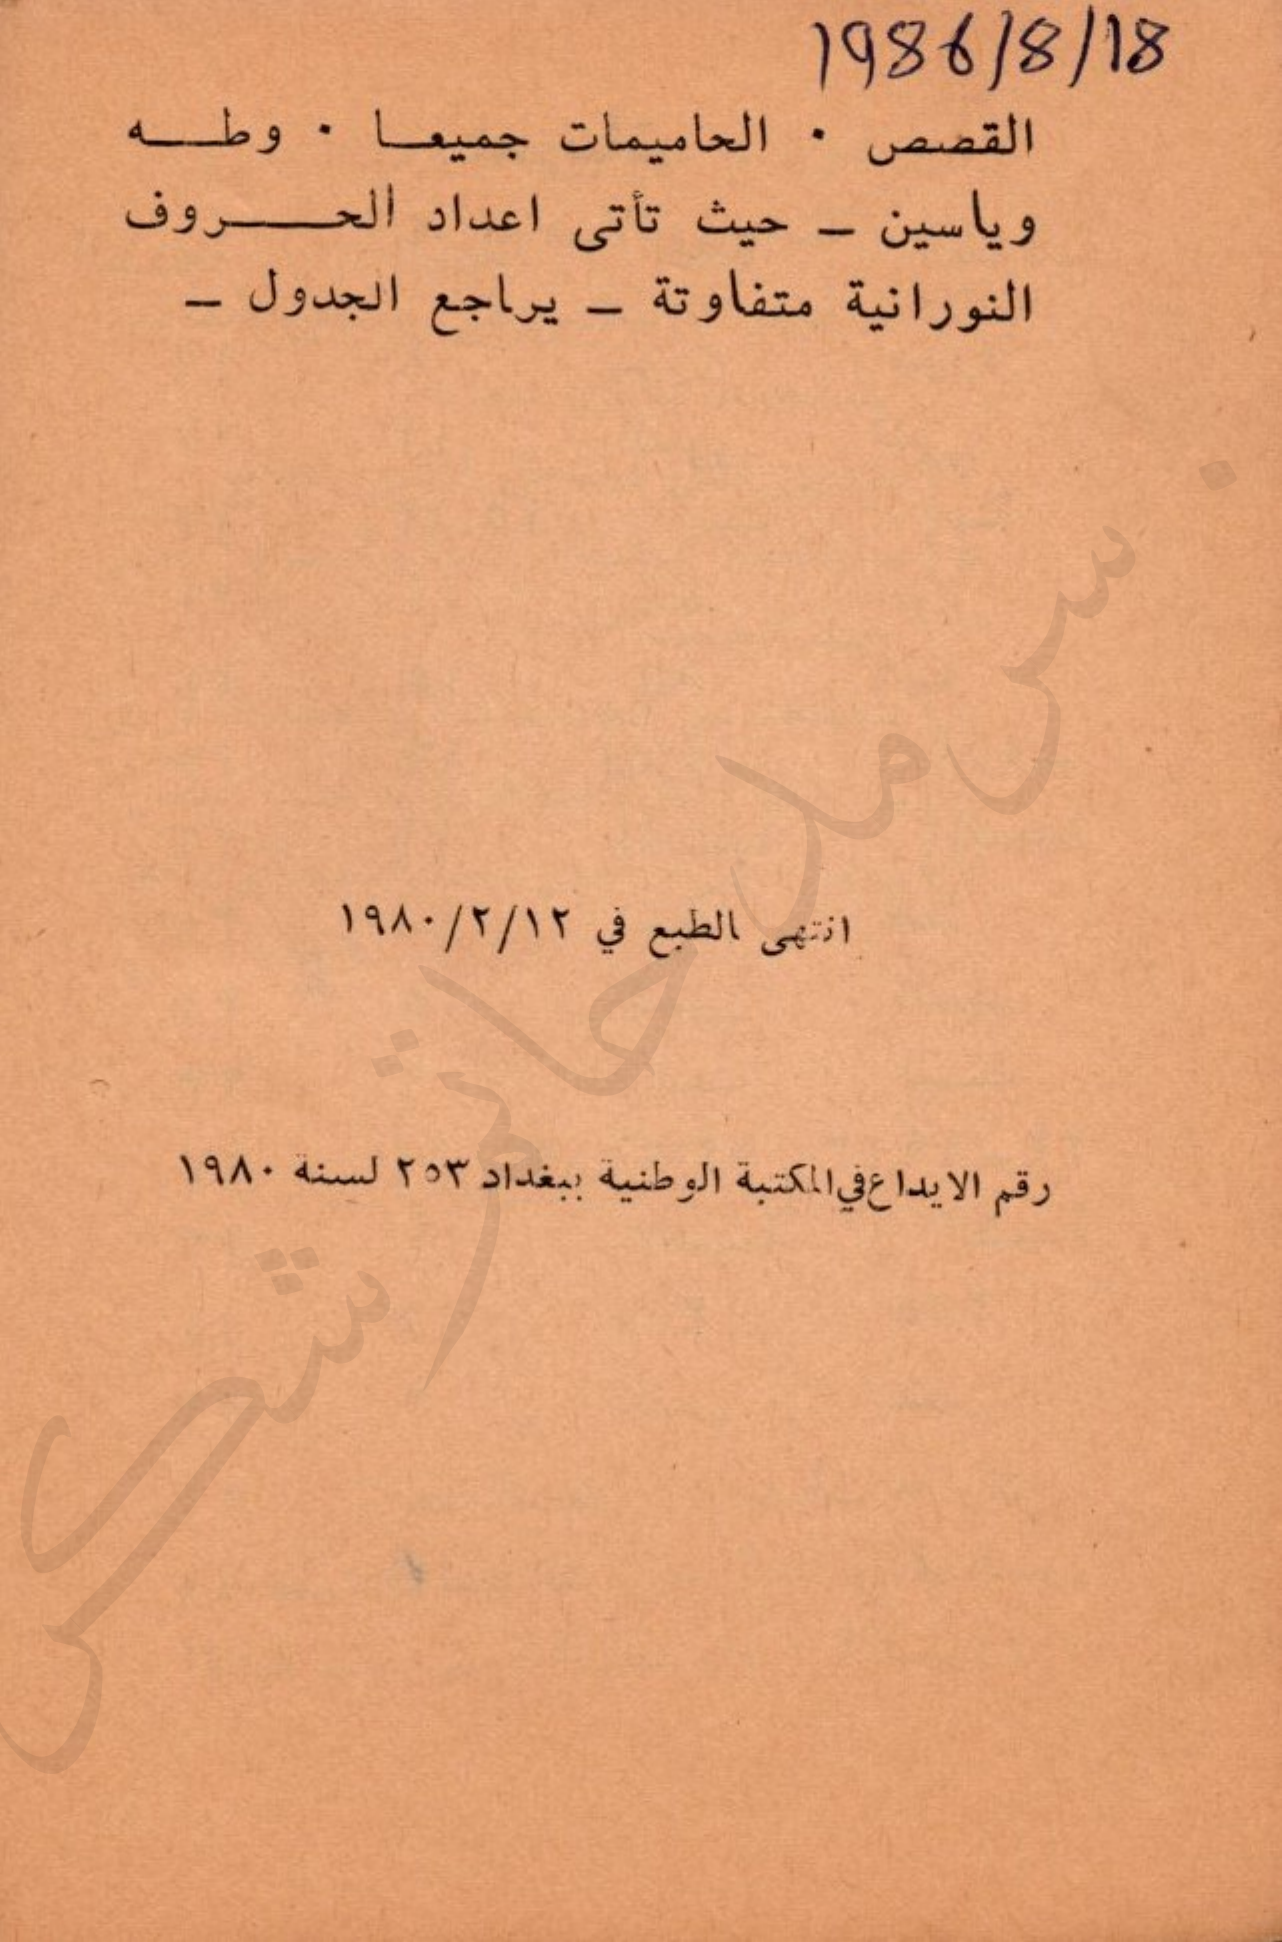 1986/8/18
القصص . الحاميمات جميعا . وطه
وياسين ـ حيث تأتى اعداد الحروف
النورانية متفاوتة ـ يراجع الجدول ـ
انتهى الطبع في ١٩٨٠/٢/١٢
رقم الايداع في المكتبة الوطنية ببغداد ٢٥٣ لسنة ١٩٨٠